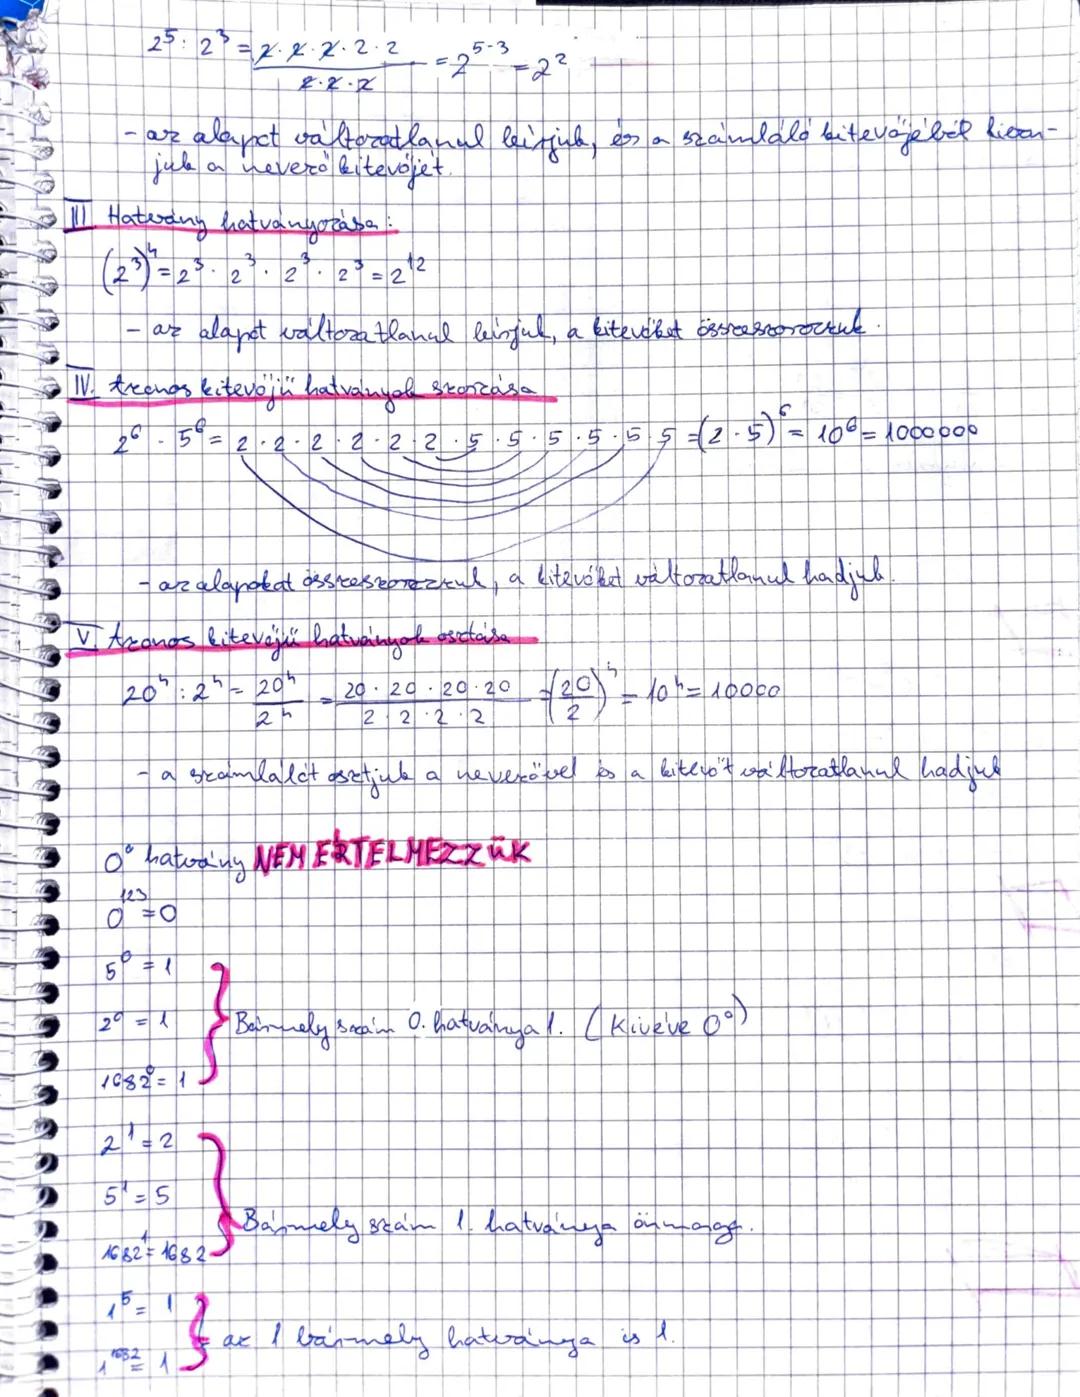 2⁵ : 2³ = 2·2·2·2·2 / 2·2·2 = 2⁵⁻³ = 2²
- az alapot változatlanul leírjuk, és a számláló kitevőjéből kivon-
juk a nevező kitevőjét.
III Hatvány hatványozása:
(2³)⁴ = 2³ · 2³ · 2³ · 2³ = 2¹²
- az alapot változatlanul leírjuk, a kitevőket összeszorozzuk.
IV. Azonos kitevőjű hatványok szorzása
2⁶ · 5⁶ = 2·2·2·2·2·2·5·5·5·5·5·5 = (2·5)⁶ = 10⁶ = 1000000
- az alapokat összeszorozzuk, a kitevőket változatlanul hadjuk.
V. Azonos kitevőjű hatványok osztása
20⁴ : 2⁴ = 20⁴ / 2⁴ = 20·20·20·20 / 2·2·2·2 = (20/2)⁴ = 10⁴ = 10000
- a számlálót osztjuk a nevezővel és a kitevőt változatlanul hadjuk
0⁰ hatvány NEM ÉRTELMEZZÜK
0¹²³ = 0
5⁰ = 1
2⁰ = 1 Bármely szám 0. hatványa 1. (Kivéve 0⁰)
1682⁰ = 1
2¹ = 2
5¹ = 5
Bármely szám 1. hatványa önmaga.
1682¹ = 1682
1⁵ = 1
az 1 bármely hatványa is 1.
1¹⁶⁸² = 1